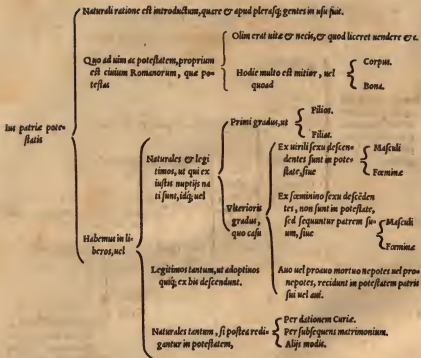 Naturali ratione est introductum, quare & apud plerasq; gentes in usu fuit.
Ius patriæ pote-
statis
Quo ad uim ac potestatem, proprium
est ciuium Romanorum, quæ po-
testas
Olim erat uitæ & necis, & quod liceret uendere & c.
Hodie multo est mitior, uel
quoad
Corpus.
Bona.
Habemus in li-
beros, uel
Naturales & legi
timos, ut qui ex
iustis nuptijs na
ti sunt, idq; uel
Primi gradus, ut
Filios.
Filias.
Vlterioris
gradus,
quo casu
Ex uirili sexu descen-
dentes sunt in pote-
state, siue
Masculi
Fœminæ
Ex fœminino sexu descēden
tes, non sunt in potestate,
sed sequuntur patrem su-
um, siue
Masculi
Fœminæ
Auo uel proauo mortuo nepotes uel pro-
nepotes, recidunt in potestatem patris
sui uel aui.
Legitimos tantum, ut adoptiuos
quiq; ex his descendunt.
Naturales tantum, si postea redi-
gantur in potestatem,
Per dationem Curiæ.
Per subsequens matrimonium.
Alijs modis.